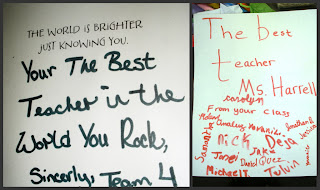 THE WORLD IS BRIGHTER
JUST KNOWING YOU.
Your The Best
Teacher in the
World You Rock,
Sincerly, Team 4
The best
teacher
Ms. Harrell
carolyn
From your class
Nick Deja
Samantha
Janel Jake
David
Michael T.